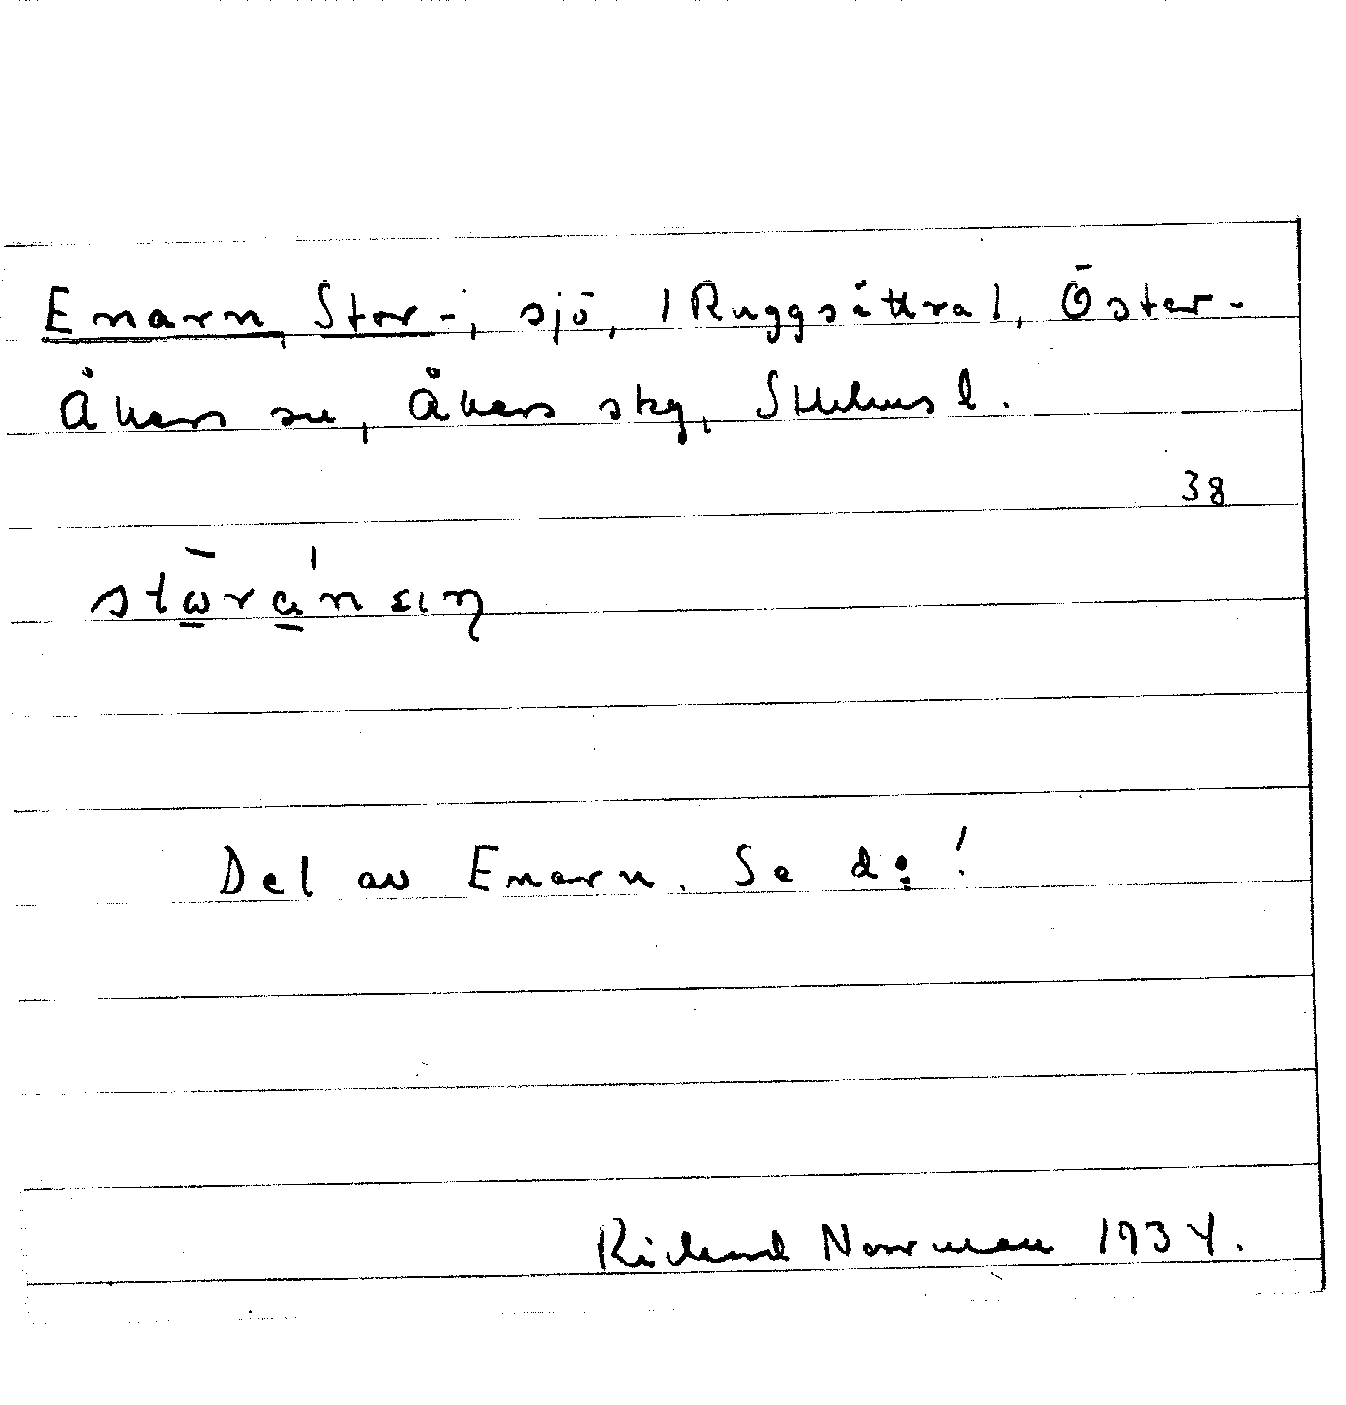 Enarn, Stor-, sjö, /Ruggsättra/, Öster-
Åkers sn, Åkers skg, Sthlms l.
38
Del av Enarn. Se d:o!
Richard Norrman 1934.